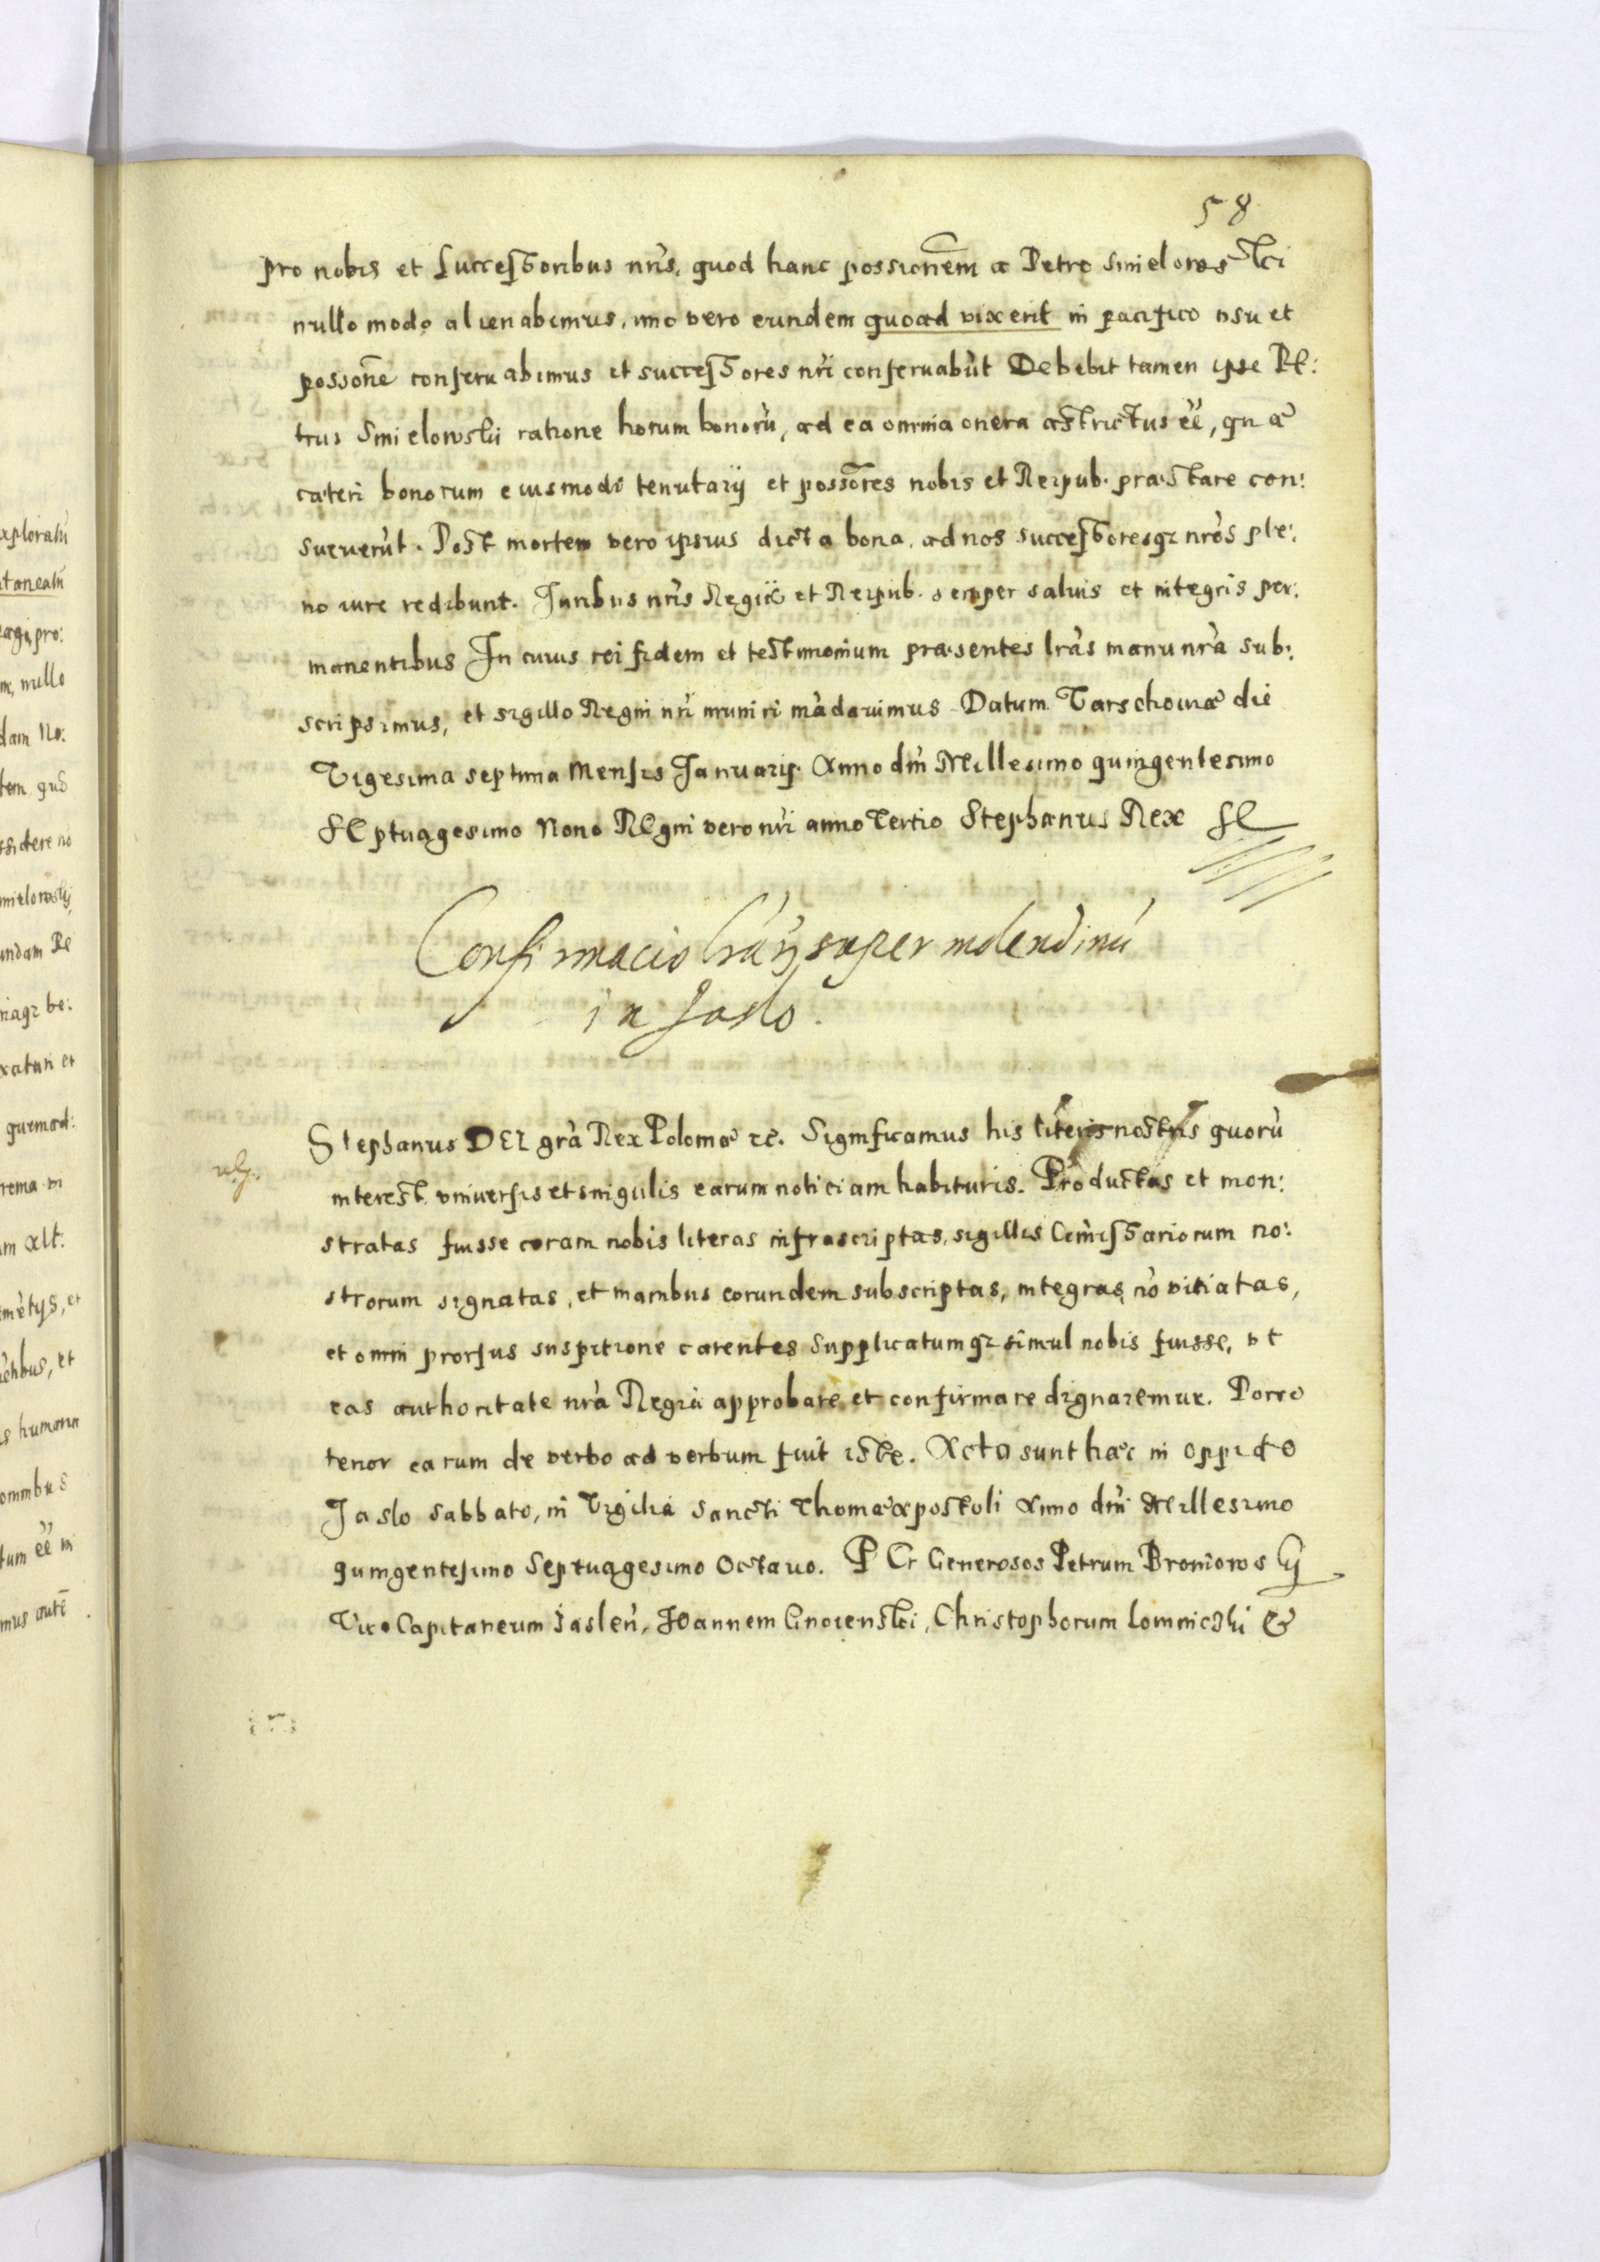 58
pro nobis et Successoribus nr̃is, quod hanc possionem a Petro Smielowski
nullo modo alienabimus, imo vero eundem quoad vixerit in pacifico usu et
possone conservabimus et successores nr̃i conservabũt Debebit tamen ipse Pe:
trus Smielowskii ratione horum bonorũ, ad ea omnia onera astrictus ẽẽ, quæ
cæteri bonorum eiusmodi tenutarij et possores nobis et Reipub. præstare con:
sueverũt. Post mortem vero ipsius dicta bona, ad nos successoresq3 nr̃os ple:
no iure redibunt. Juribus nr̃is Regiis et Reipub. semper salvis et integris per:
manentibus In cuius rei fidem et testimonium præsentes lr̃as manu nr̃a sub:
scripsimus, et sigillo Regni nr̃i muniri mãdavimus Datum Varschoviæ die
Vigesima septima Mensis Januarij. Anno dñi Millesimo quingentesimo
Septuagesimo Nono Regni vero nr̃i anno Tertio Stephanus Rex S<i></i>
Confirmacio lr̃ar3 super molendinũ
in Jaslo.
Stephanus DEI gr̃a Rex Poloniæ &c. Significamus his literis nostris quorũ
interest universis et singulis earum noticiam habituris. Productas et mon:
stratas fuisse coram nobis literas infrascriptas, sigillis Com̃issariorum no:
strorum signatas, et manibus eorundem subscriptas, integras, nõ vitiatas,
et omni prorsus suspitione carentes Supplicatumq3 simul nobis fuisse, ut
eas authoritate nr̃a Regia approbare et confirmare dignaremur. Porro
tenor earum de verbo ad verbum fuit iste. Acta sunt hæc in oppido
Jaslo sabbato, in Vigilia Sancti Thomæ apostoli Anno dñi Millesimo
quingentesimo Septuagesimo Octavo. Per Generosos Petrum Broniowskij
Vice Capitaneum Jasleñ, Joannem Gnoienski, Christophorum Lomniczki &